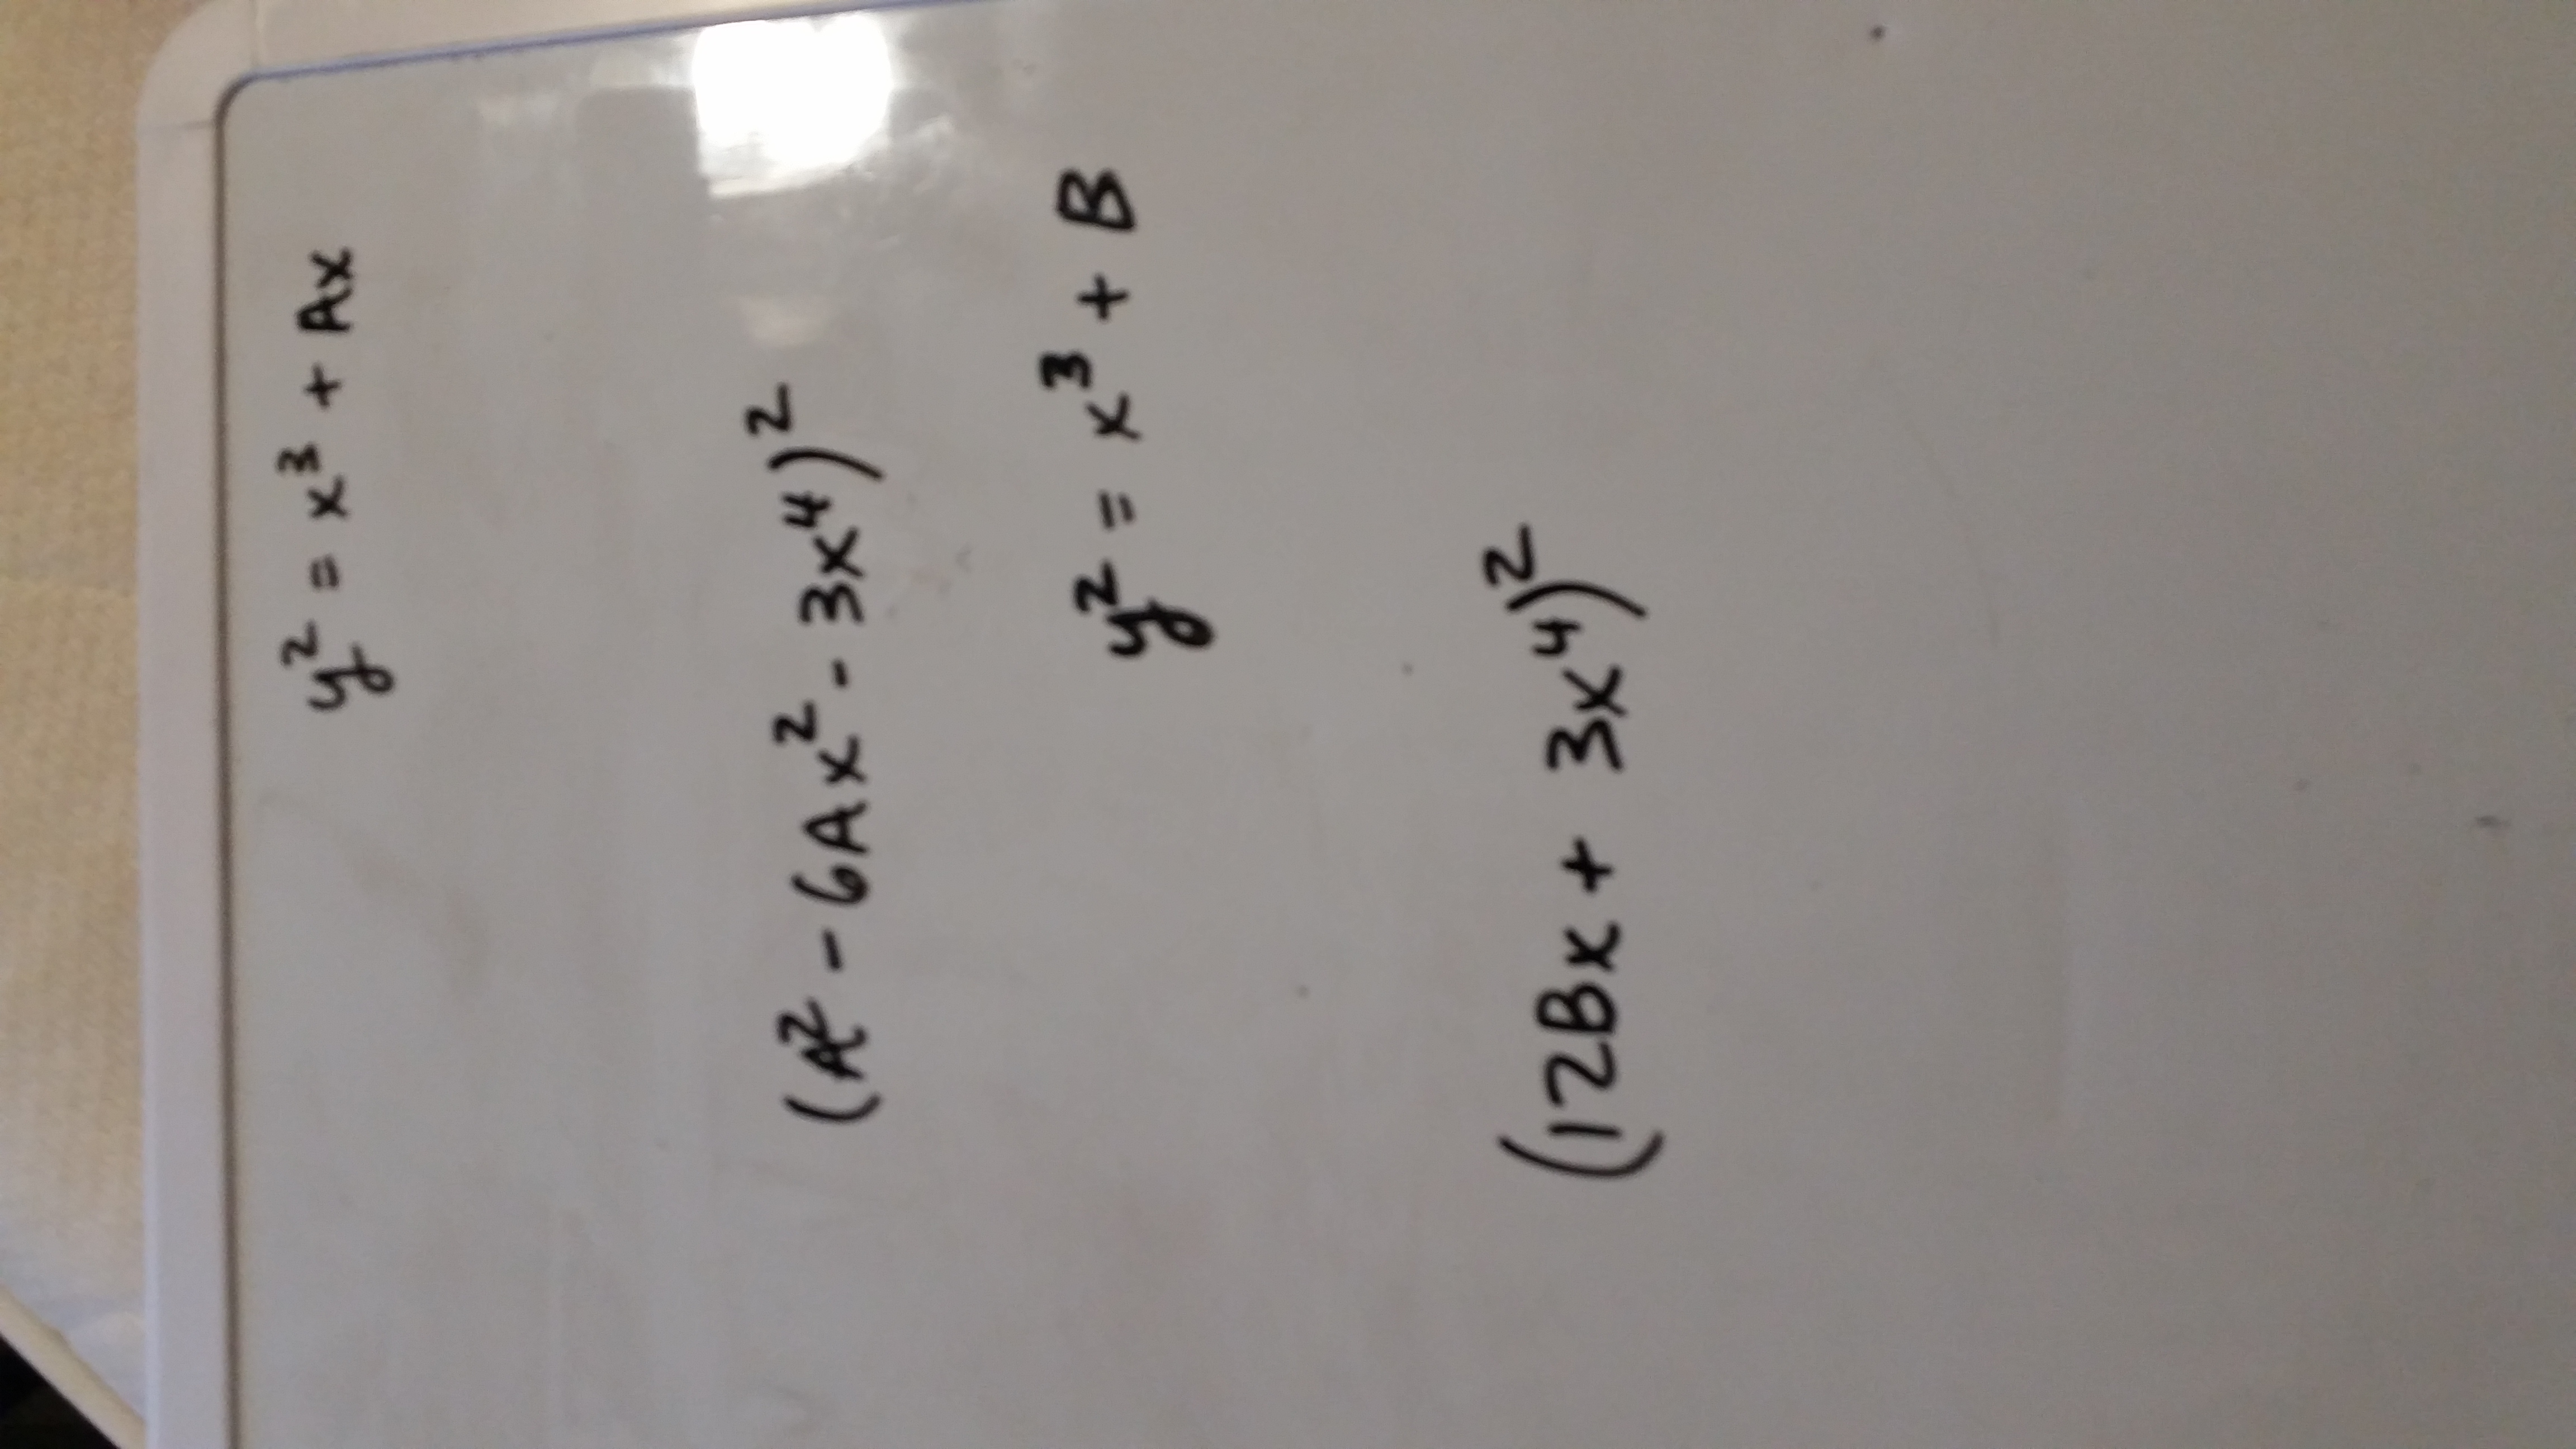 y² = x³ + Ax
(A² - 6Ax² - 3x⁴)²
y² = x³ + B
(12Bx + 3x⁴)²